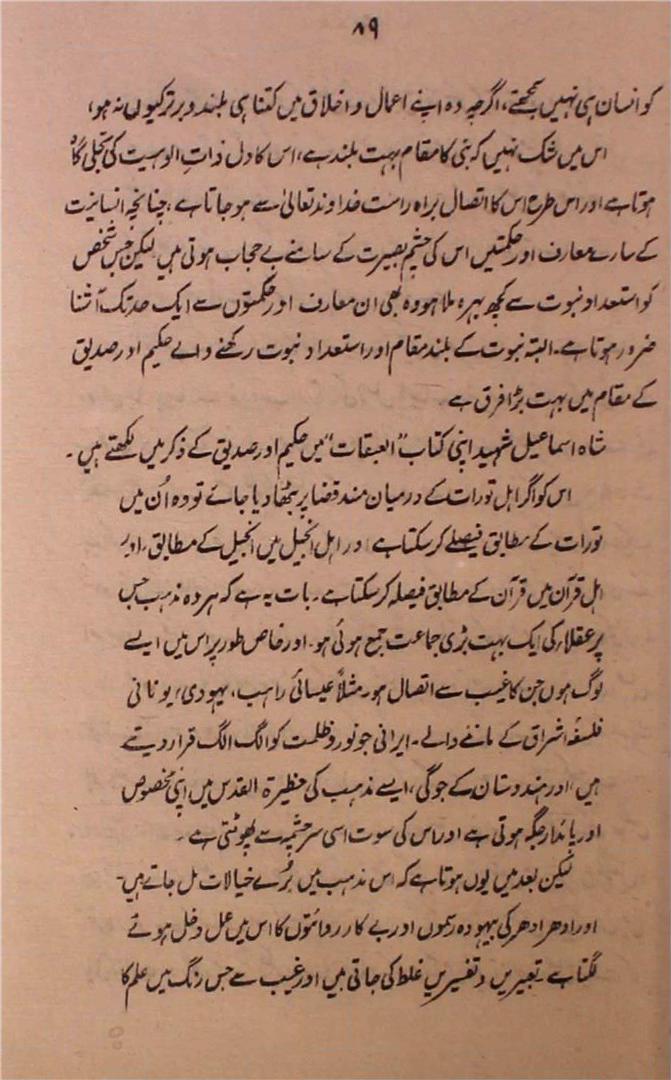 ۸۹
کو انسان ہی نہیں سمجھتے، اگرچہ وہ اپنے اعمال و اخلاق میں کتنا ہی بلند و برتر کیوں نہ ہو،
اس میں شک نہیں کہ نبی کا مقام بہت بلند ہے، اس کا دل ذاتِ الوہیت کی تجلی گاہ
ہوتا ہے اور اس طرح اس کا اتصال براہ راست خداوند تعالیٰ سے ہو جاتا ہے، چنانچہ انسانیت
کے سارے معارف اور حکمتیں اس کی چشم بصیرت کے سامنے بے حجاب ہوتی ہیں لیکن جس شخص
کو استعداد نبوت سے کچھ بہرہ ملا ہو وہ بھی ان معارف اور حکمتوں سے ایک حد تک آشنا
ضرور ہوتا ہے۔ البتہ نبوت کے بلند مقام اور استعداد نبوت رکھنے والے حکیم اور صدیق
کے مقام میں بہت بڑا فرق ہے
شاہ اسماعیل شہید اپنی کتاب "العبقات" میں حکیم اور صدیق کے ذکر میں لکھتے ہیں۔
اس کو اگر اہل تورات کے درمیان مسند قضا پر بٹھا دیا جائے تو وہ اُن میں
تورات کے مطابق فیصلے کر سکتا ہے اور اہل انجیل میں انجیل کے مطابق، اور
اہل قرآن میں قرآن کے مطابق فیصلہ کر سکتا ہے۔ بات یہ ہے کہ ہر وہ مذہب جس
پر عقلاء کی ایک بہت بڑی جماعت جمع ہوئی ہو۔ اور خاص طور پر اس میں ایسے
لوگ ہوں جن کا غیب سے اتصال ہو، مثلاً عیسائی راہب، یہودی، یونانی
فلسفۂ اشراق کے ماننے والے۔ ایرانی جو نور و ظلمت کو الگ الگ قرار دیتے
ہیں، اور ہندوستان کے جوگی، ایسے مذہب کی حظیرۃ القدس میں اپنی مخصوص
اور پائدار جگہ ہوتی ہے اور اس کی سوت اسی سرچشمہ سے پھوٹتی ہے۔
لیکن بعد میں یوں ہوتا ہے کہ اس مذہب میں بُرے خیالات مل جاتے ہیں۔
اور ادھر ادھر کی بیہودہ رسموں اور بے کار روائتوں کا اس میں عمل دخل ہونے
لگتا ہے۔ تعبیریں و تفسیریں غلط کی جاتی ہیں اور غیب سے جس رنگ میں علم کا